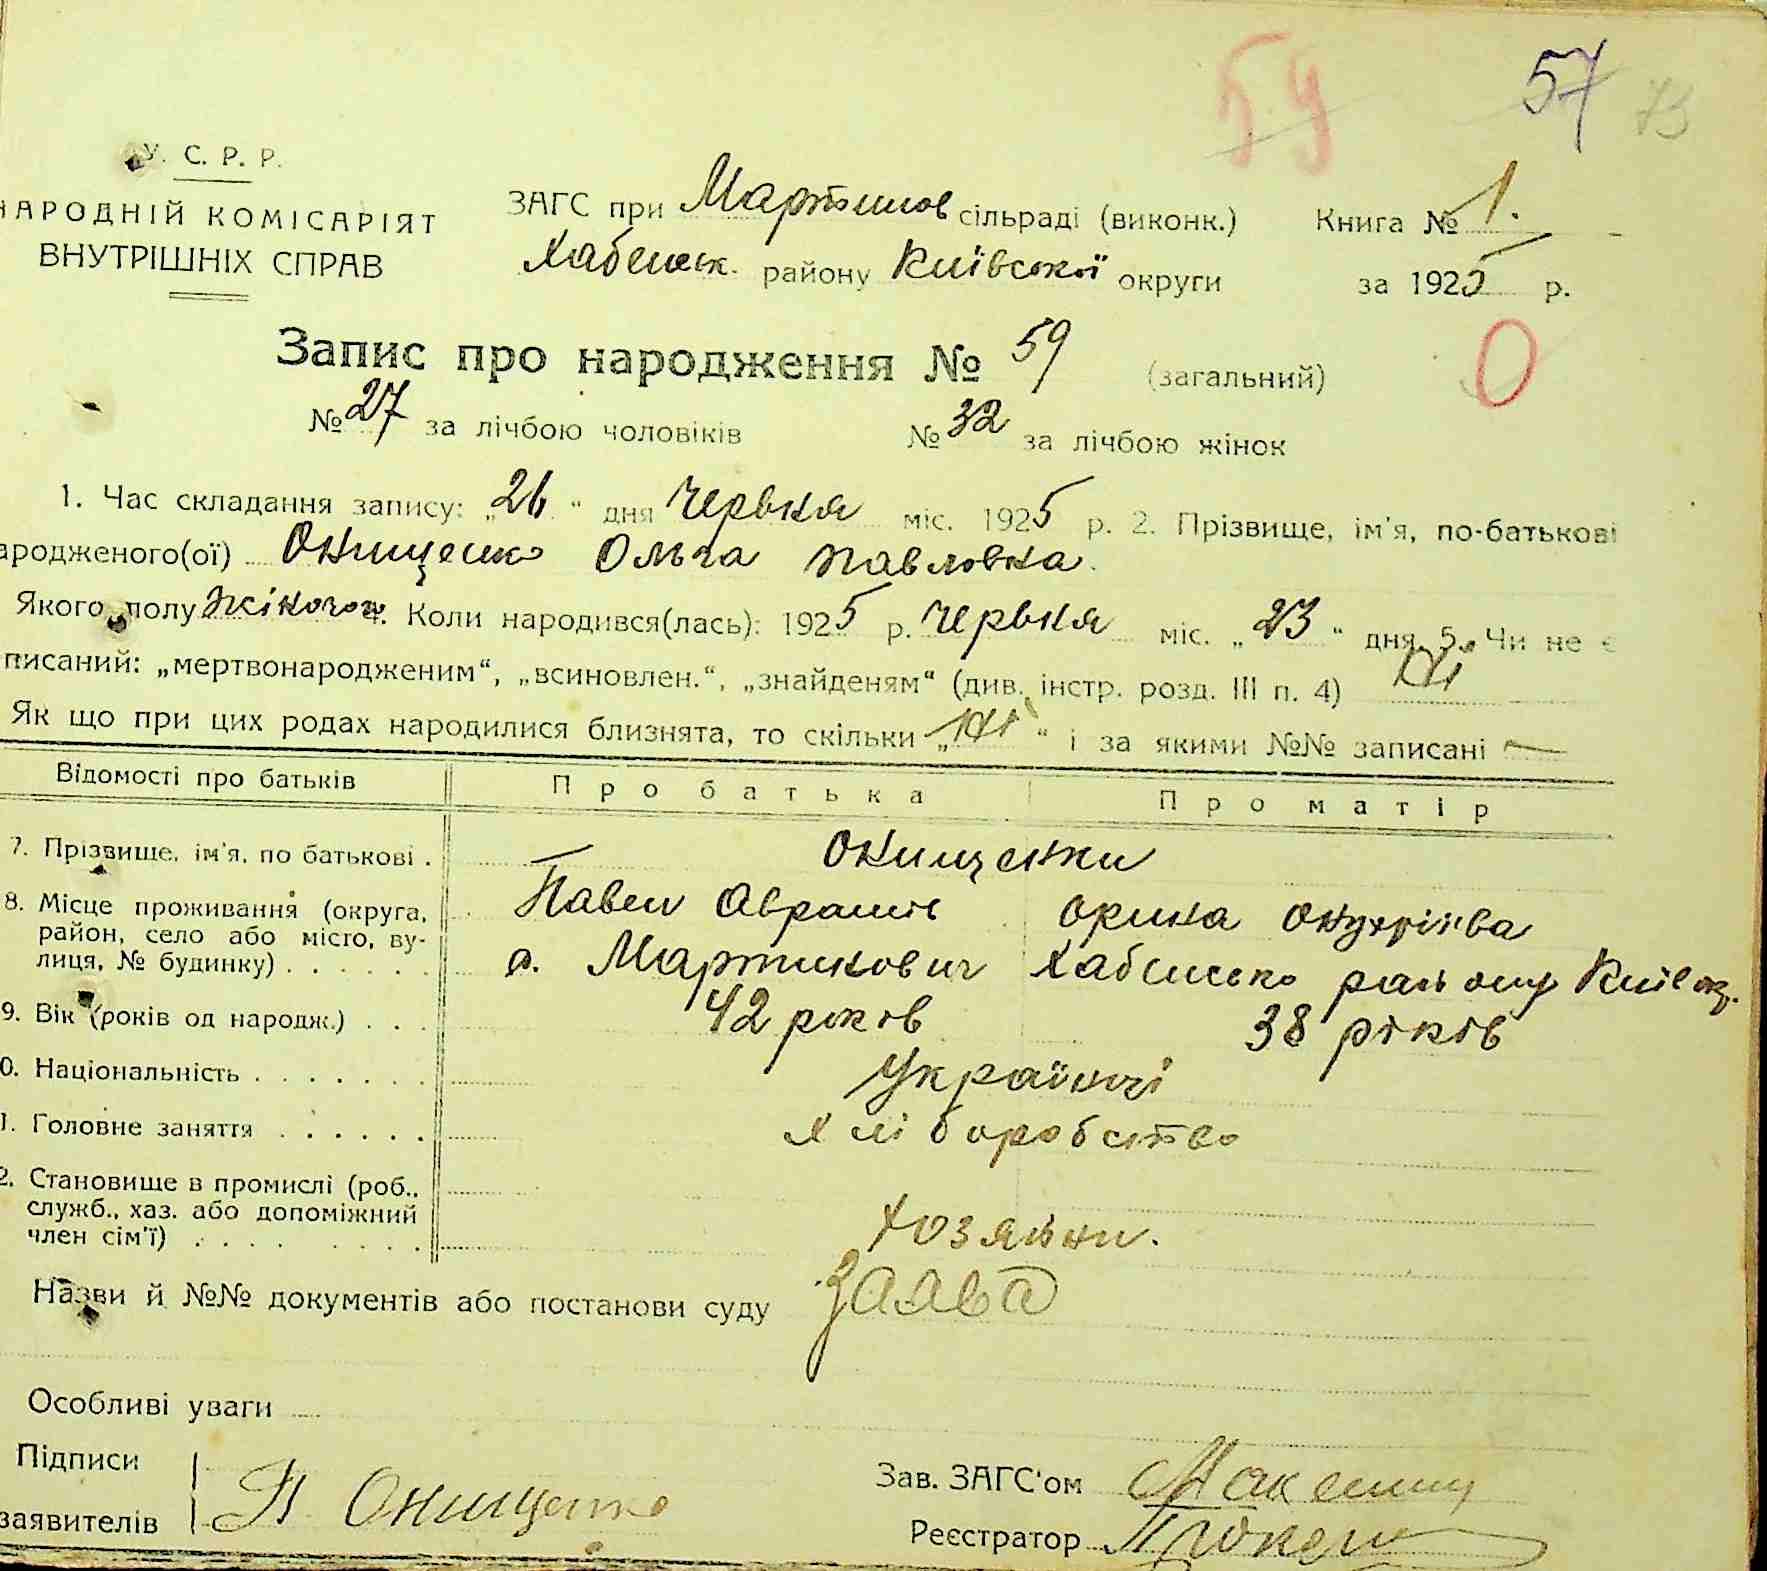 59 57 73
У. С. Р. Р.
НАРОДНІЙ КОМІСАРІЯТ
ВНУТРІШНІХ СПРАВ
ЗАГС при Мартинов сільраді (виконк.) Книга № 1.
Хабенськ. району Київської округи за 1925 р.
Запис про народження № 59 (загальний) 0
№ 27 за лічбою чоловіків № 32 за лічбою жінок
1. Час складання запису: „26“ дня Червня міс. 1925 р. 2. Прізвище, ім'я, по-батькові
ародженого(ої) Онищенко Ольга Павловна.
Якого полу жіночого. Коли народився(лась): 1925 р. Червня міс. „23“ дня. 5. Чи не є
писаний: „мертвонародженим“, „всиновлен.“, „знайденям“ (див. інстр. розд. III п. 4) ні
Як що при цих родах народилися близнята, то скільки „ні“ і за якими №№ записані —
Відомості про батьків Про батька Про матір
7. Прізвище, ім'я, по батькові . Онищенки
8. Місце проживання (округа, Павел Аврамів Орина Онуфріїва
район, село або місто, ву-
лиця, № будинку) . . . . . . с. Мартинович Хабенсько району Київ ок.
9. Вік (років од народж.) . . . 42 років 38 років
0. Національність . . . . . . . Українці
1. Головне заняття . . . . . . Хліборобство
2. Становище в промислі (роб.,
служб., хаз. або допоміжний
член сім'ї) . . . . . . . . . Хозяїни.
Назви й №№ документів або постанови суду Заява
Особливі уваги
Підписи
заявителів П Онищенко
Зав. ЗАГС'ом
Реєстратор